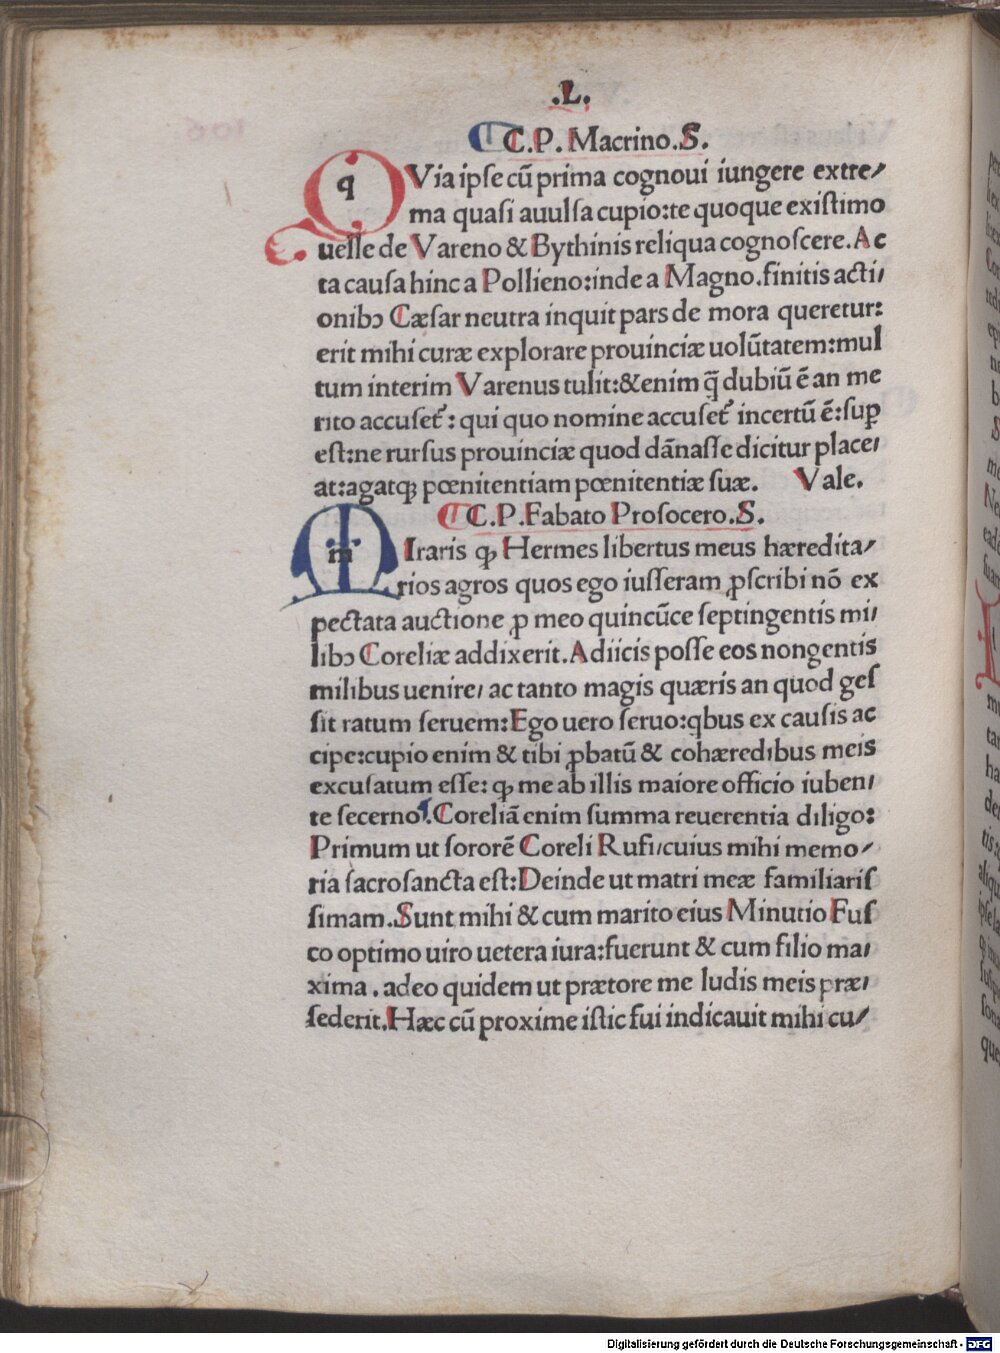 .L.
C.P. Macrino.S.
QVia ipſe cū prima cognoui iungere extre/
ma quaſi auulſa cupio:te quoque exiſtimo
uelle de Vareno & Bythinis reliqua cognoſcere.Ac
ta cauſa hinc a Pollieno:inde a Magno.finitis acti/
onibꝫ Cæſar neutra inquit pars de mora queretur:
erit mihi curæ explorare prouinciæ uolūtatem:mul
tum interim Varenus tulit:&enim q̄ dubiū ē an me
rito accuſet᷑: qui quo nomine accuſet᷑ incertū ē:ſuꝑ
eſt:ne rurſus prouinciæ quod dānaſſe dicitur place/
at:agatqꝫ pœnitentiam pœnitentiæ ſuæ. Vale.
C.P.Fabato Proſocero.S.
mIraris ꝙ Hermes libertus meus hæredita/
rios agros quos ego iuſſeram ꝓſcribi nō ex
pectata auctione ꝓ meo quincūce ſeptingentis mi/
libꝫ Coreliæ addixerit.Adiicis poſſe eos nongentis
milibus uenire/ ac tanto magis quæris an quod geſ
ſit ratum ſeruem:Ego uero ſeruo:qbus ex cauſis ac
cipe:cupio enim & tibi ꝓbatū & cohæredibus meis
excuſatum eſſe: ꝙ me ab illis maiore officio iuben/
te ſecerno.Coreliā enim ſumma reuerentia diligo:
Primum ut ſororē Coreli Rufi/cuius mihi memo/
ria ſacroſancta eſt:Deinde ut matri meæ familiariſ
ſimam.Sunt mihi & cum marito eius Minutio Fuſ
co optimo uiro uetera iura:fuerunt & cum filio ma/
xima . adeo quidem ut prætore me ludis meis præ/
ſederit.Hæc cū proxime iſtic fui indicauit mihi cu/
Digitalisierung gefördert durch die Deutsche Forschungsgemeinschaft - DFG